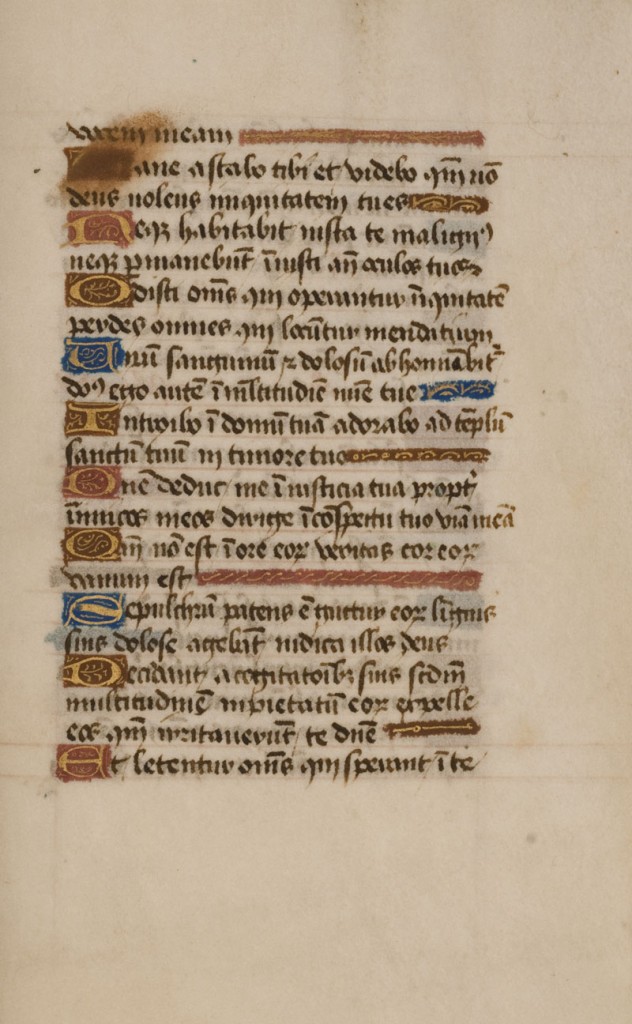 vocem meam
Mane astabo tibi et videbo qm̄ nō
deus volens iniquitatem tu es
Neqꝫ habitabit iuxta te maligꝰ
neqꝫ ꝑmanebūt īiusti an̄ oculos tuos
Odisti om̄s qui operantur īiquitatē
perdes omnes qui locūtur mendatium
Uirū sanguinū ⁊ dolosū abhominabit᷑
dn̄ꝰ ego autē ī multitudīe mīe tue
Introibo ī domū tuā adorabo ad tēplū
sanctū tuū in timore tuo
Dn̄e deduc me ī iusticia tua propt̄
īimicos meos dirige ī cōspectu tuo viā meā
Qm̄ nō est ī ore eoꝝ veritas cor eoꝝ
vanum est
Sepulchrū patens ē guttur eoꝝ liguis
suis dolose agebāt iudica illos deus
Decidant a cogitatoībꝫ suis scdm̄
multitudinē inpietatū eoꝝ expelle
eos qm̄ irritauerūt te dn̄e
Et letentur om̄s qui sperant ī te